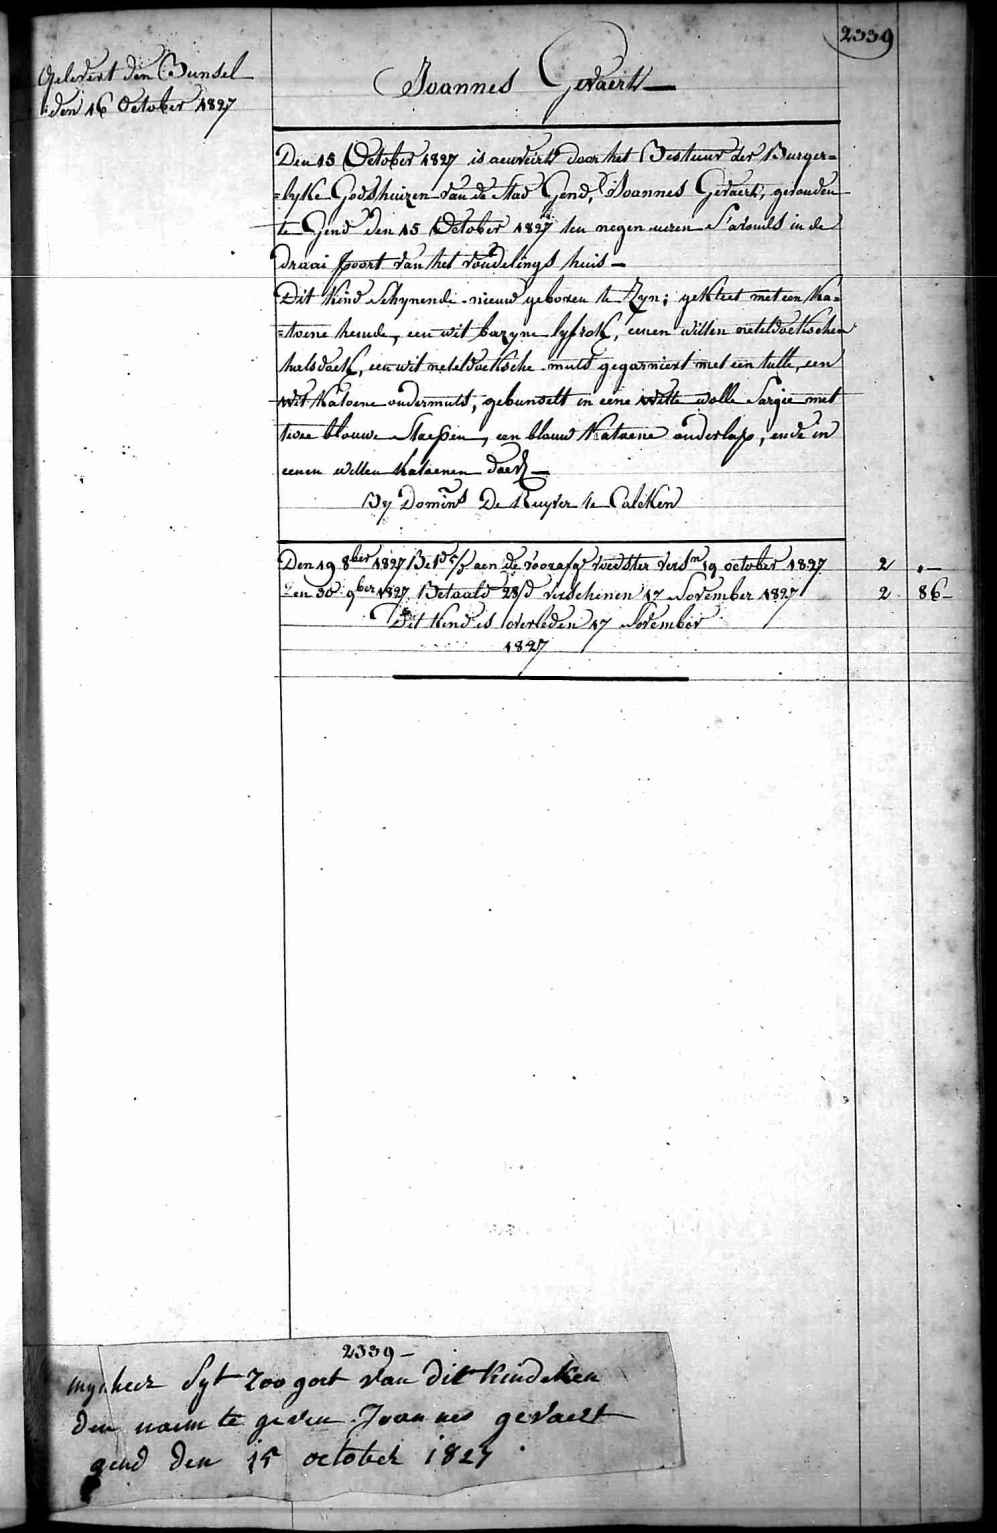 2339
Gelevert den Bunsel
den 16 October 1827
Joannes Gevaert
Den 15 October 1827 is aenveirt door het Bestuur der Burger=
=lyke Godshuizen van de Stad Gend, Joannes Gevaert, gevonden
te Gend den 15 October 1827 ten negen uren s'avonds in de
draai poort van het vondelings huis —
Dit Kind Schynende nieuw geboren te Zyn; gekleet met een Ka=
=toene hemde, een wit bazyne lyfrok, eenen witten neteldoekschen
halsdoek, een wit neteldoeksche muts gegarniert met een tulle, een
wit Katoene ondermuts, gebunselt in eene witte wolle Sargie met
twee blouwe Staepen, een blauw Katoene onderlap, ende in
eenen witten Katoenen doek —
By Domin.s De Ruyver te Calcken
Den 19 8ber 1827 aen de voedster 19 october 1827 2 „—
Den 30 9ber 1827 Betaald 28/d verschenen 17 November 1827 2 86—
Dit Kind is overleden 17 November
1827
2339—
mynheer Syt zoo goet van dit kindeken
den naem te geven Joannes gevaert
gend den 15 october 1827.